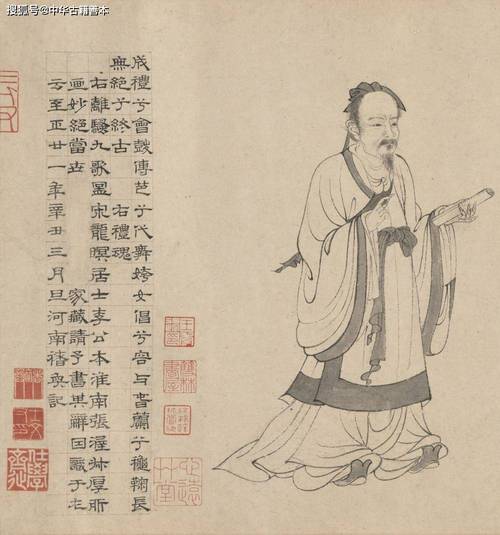 搜狐号@中华古籍善本
成禮兮會鼓傳芭兮代舞姱女倡兮容與春蘭兮龝鞠長
無絕兮終古 右禮魂
右離騷九歌圖宋龍眠居士李公本淮南張渥叔厚所
畫妙絕當世 家藏請予書其辭因識于左
云至正廿一年辛丑三月旦河南褚奐記